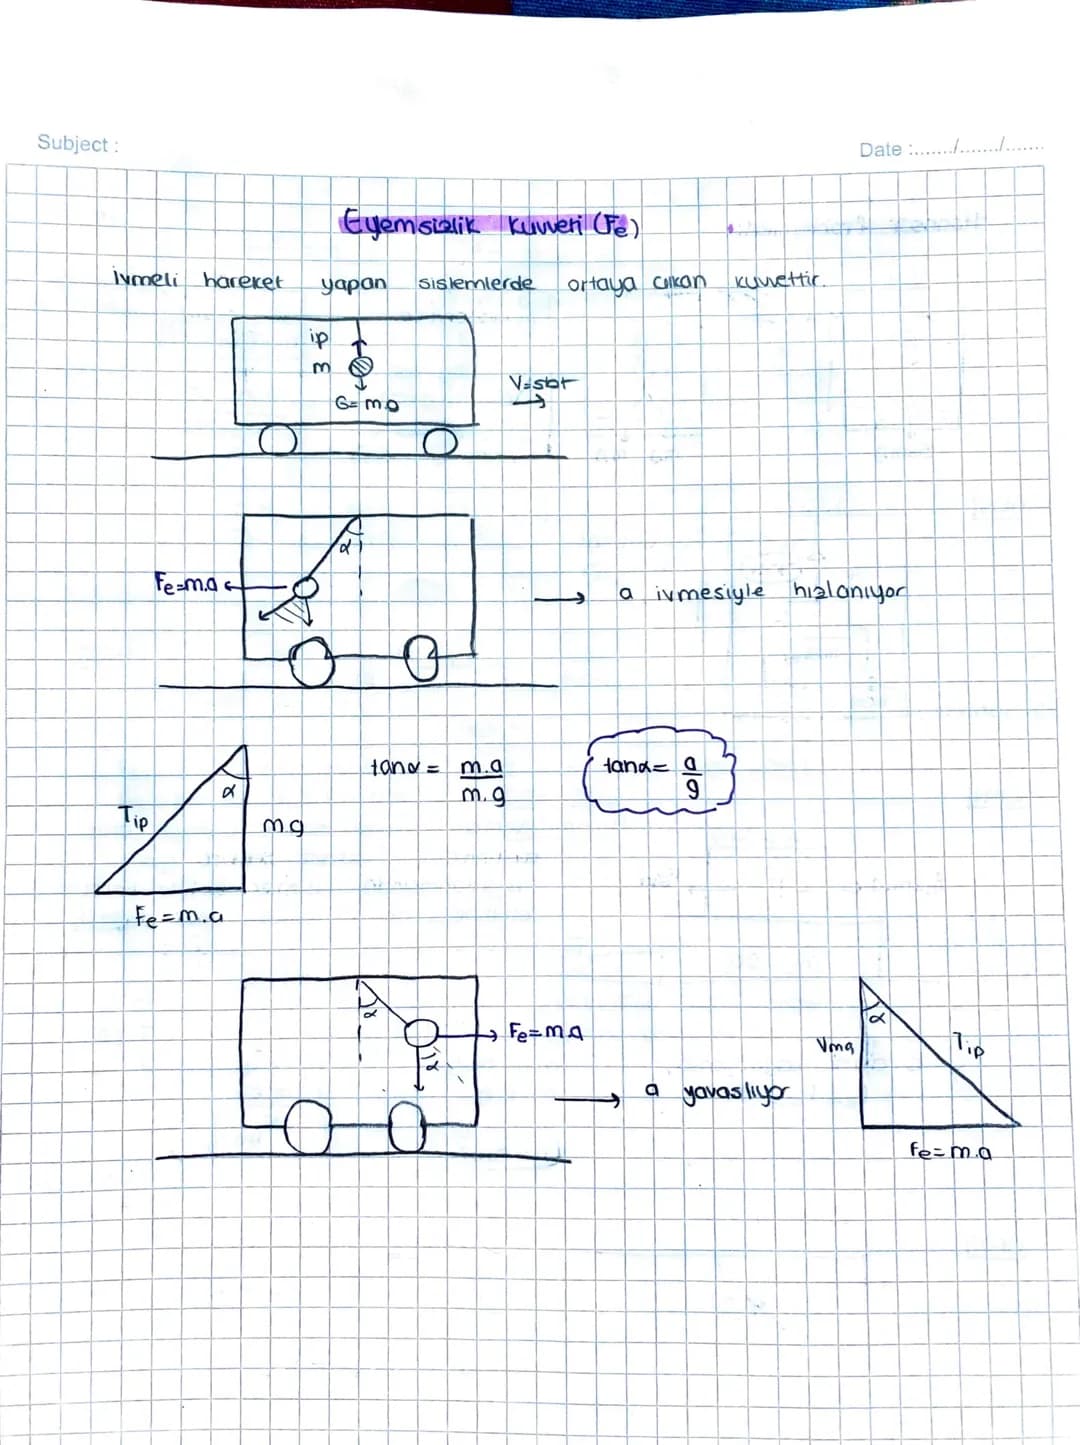 Subject :
Date :......./......./.......
Eyemsizlik kuvveti (Fe)
ivmeli hareket yapan sistemlerde ortaya çıkan kuvvettir.
ip
m
G= m.g
V=sbt
α
Fe=m.a
a ivmesiyle hızlanıyor
tanα = m.a / m.g
tanα= a / g
α
Tip
mg
Fe=m.a
α
Fe=m a
α
a yavaslıyor
α
Vmg
Tip
fe=m.a